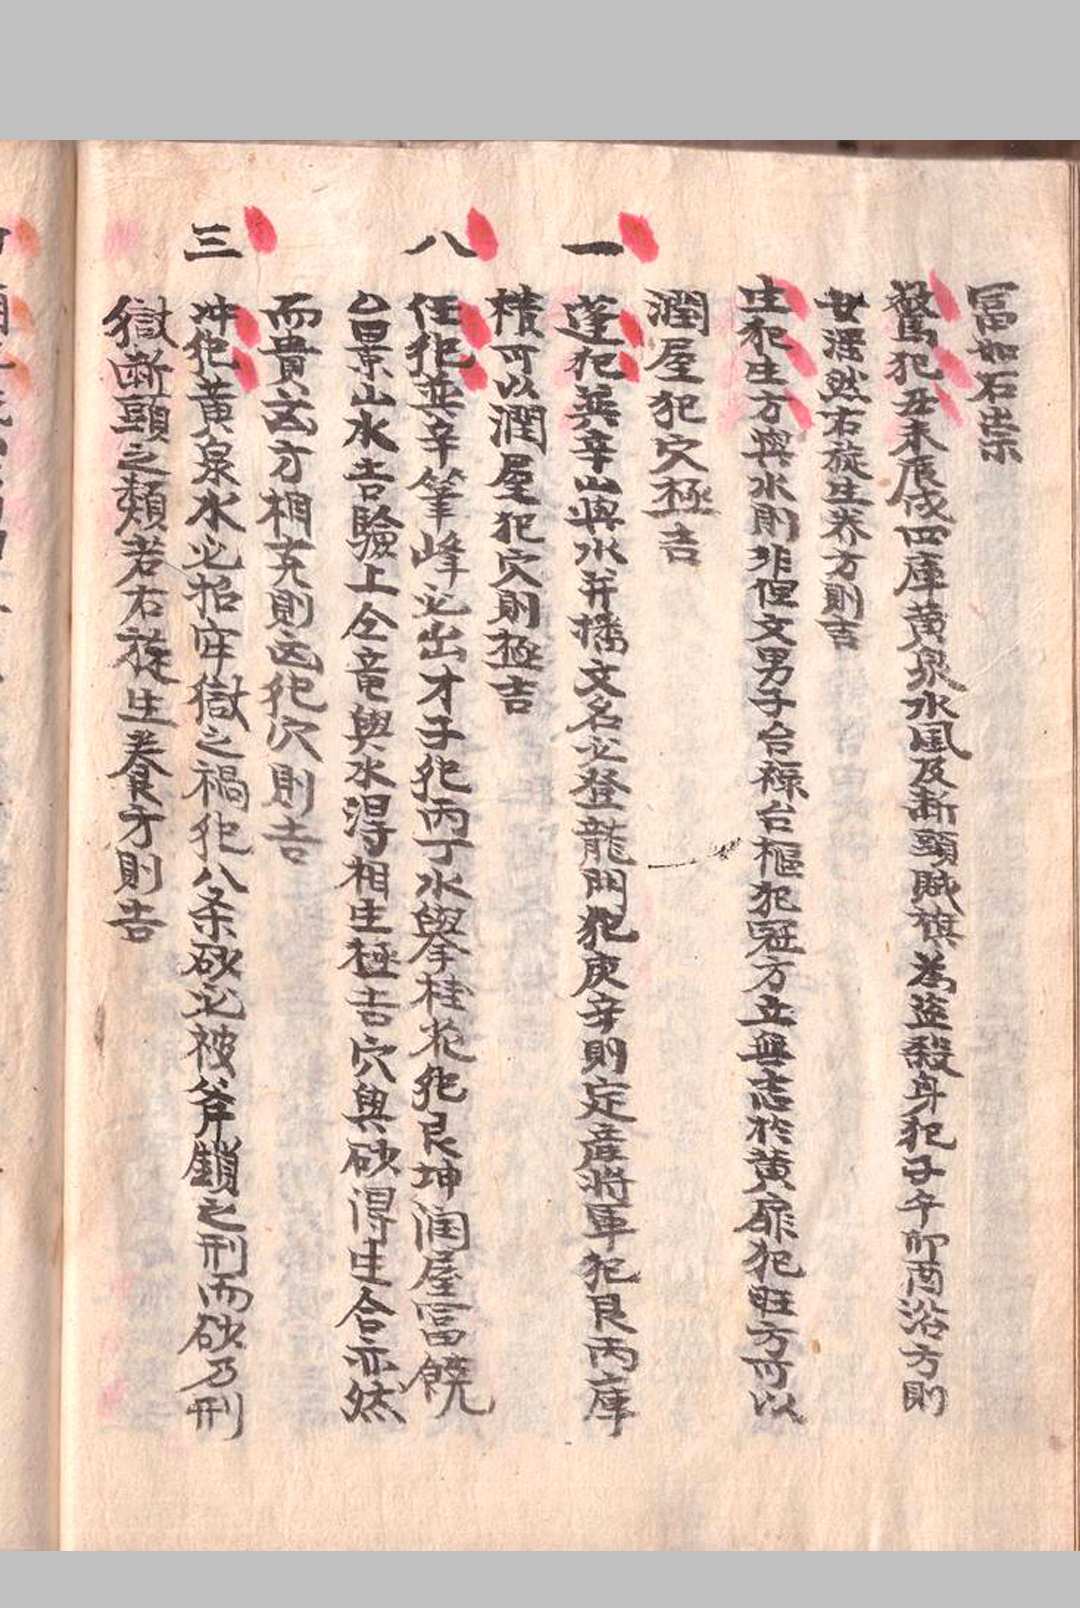 冨如石崇
驚犯丑未辰戌四庫黃泉水風及斷頭賊旗為盜殺身犯子午卯酉浴方則
甘濕然右旋生养方則吉
生犯生方與水則非但文男子台祿台樞犯冠方立無志於黃扉犯旺方可以
潤屋犯穴極吉
一 蓬犯巽辛山與水并播文名必登龍門犯庚辛則定產將軍犯艮丙庫
積可以潤屋犯穴則極吉
八 任犯巽辛筆峰必出才子犯丙丁水擧手桂花犯艮坤润屋冨饒
台景山水吉驗上仝竜與水淂相生極吉穴與砂淂生合亦然
而貴玄方相克則凶犯穴則吉
三 冲犯黃泉水必招牢獄之禍犯八条砂必被斧鎖之刑而砂乃刑
獄斷頭之類若右旋生養方則吉